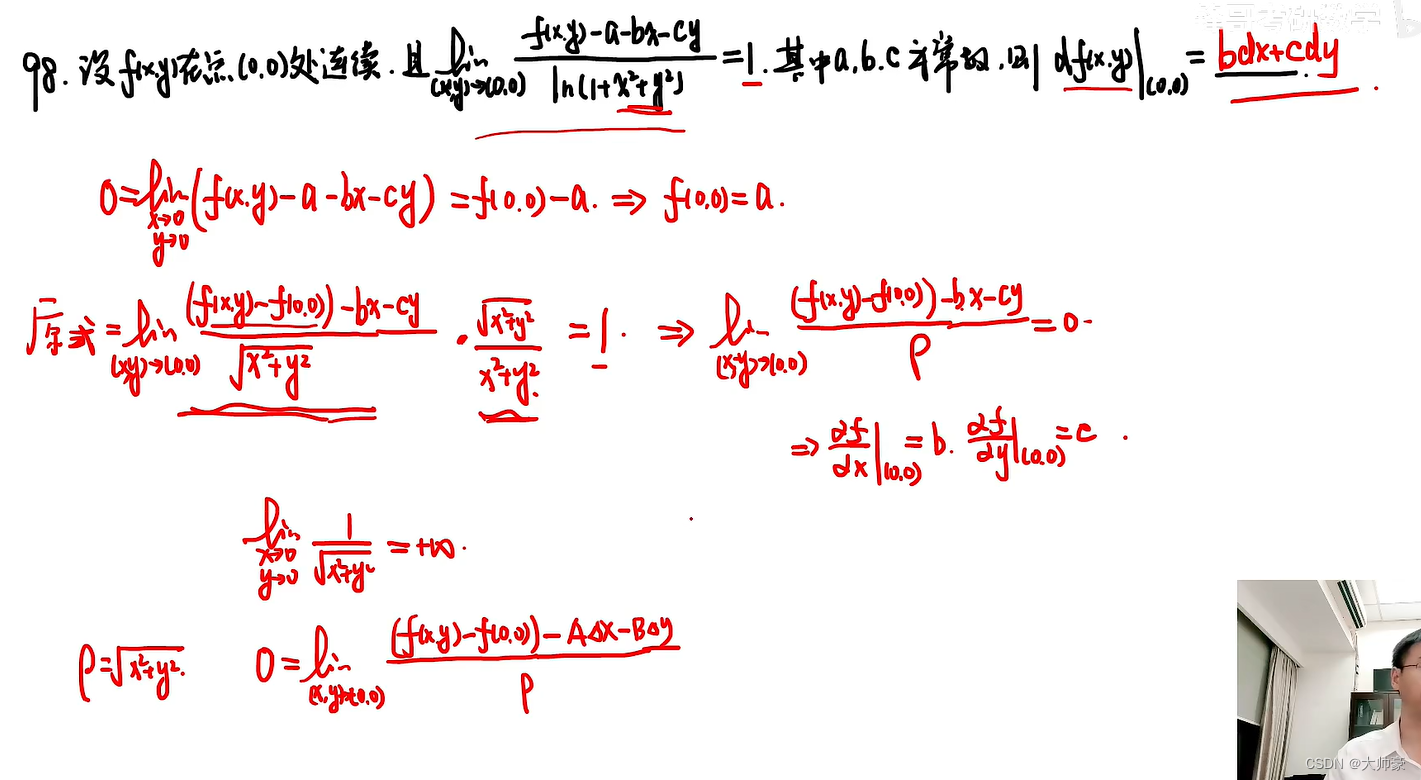 祥哥考研数学
98. 设 f(x,y)在点(0,0)处连续. 且 lim (x,y)→(0,0) (f(x,y)-a-bx-cy)/(ln(1+x²+y²)) =1. 其中a.b.c 为常数. 则 df(x,y)|(0,0) = bdx+cdy.
0=lim x→0 y→0 (f(x,y)-a-bx-cy) =f(0,0)-a. ⇒ f(0,0)=a.
原式=lim (x,y)→(0,0) ((f(x,y)-f(0,0))-bx-cy)/√(x²+y²) · √(x²+y²)/(x²+y²) =1. ⇒ lim (x,y)→(0,0) ((f(x,y)-f(0,0))-bx-cy)/ρ =0.
⇒ ∂f/∂x|(0,0) =b. ∂f/∂y|(0,0) =c.
lim x→0 y→0 1/√(x²+y²) =+∞.
ρ=√(x²+y²). 0=lim (x,y)→(0,0) ((f(x,y)-f(0,0))-AΔx-BΔy)/ρ
CSDN @大帅蒙